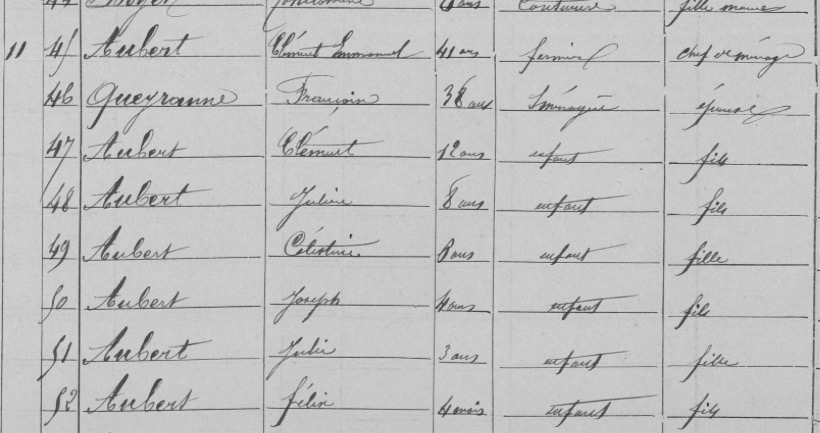 fille
11 45 Aubert Clément Emmanuel 41 ans fermier chef de ménage
46 Queyranne 38 ans épouse
47 Aubert Clément 12 ans enfant fils
48 Aubert Julien 8 ans enfant fils
49 Aubert Célestine 8 ans enfant fille
50 Aubert Joseph 4 ans enfant fils
51 Aubert Julie 3 ans enfant fille
52 Aubert félix 4 mois enfant fils